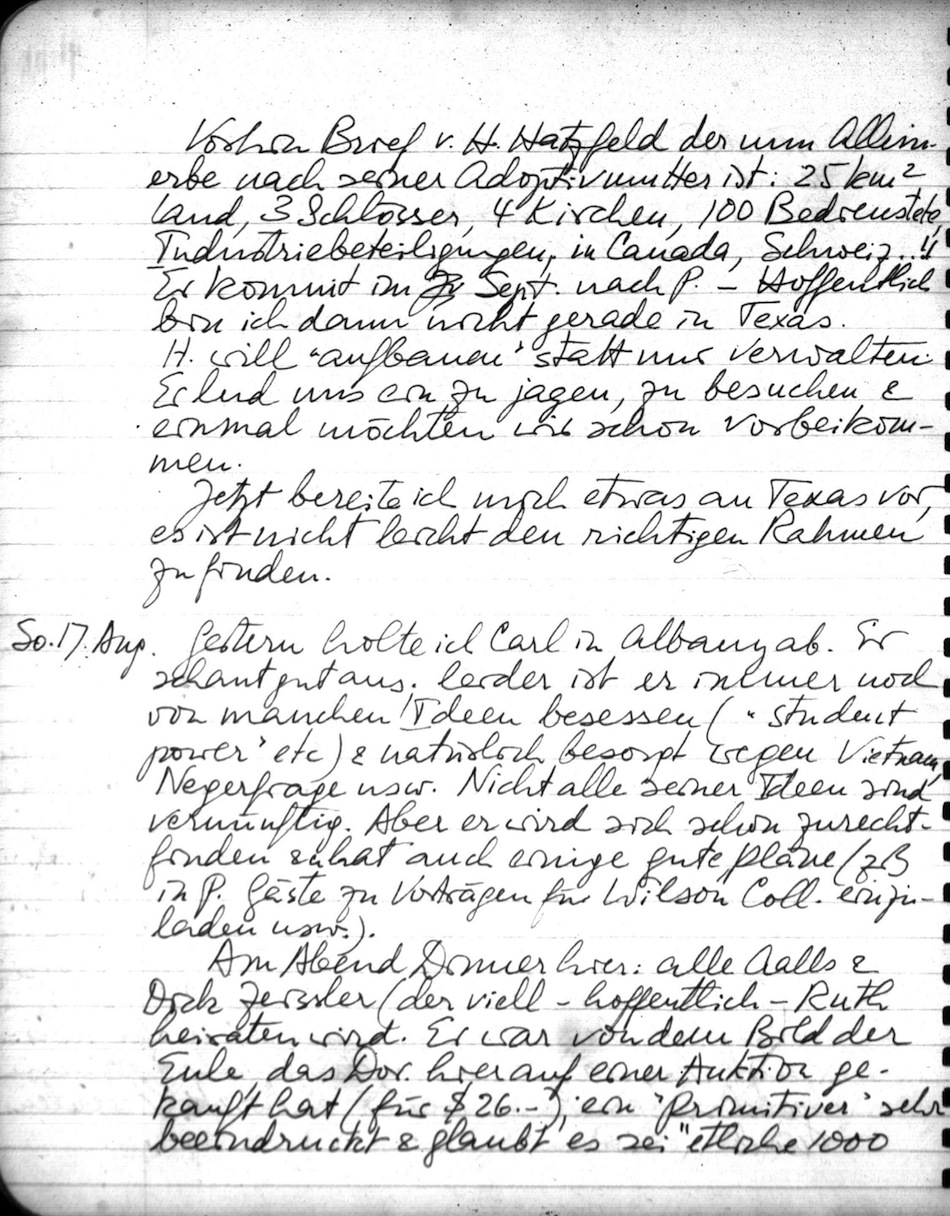 Vorhin Brief v. H. Hatzfeld der nun Allein-
erbe nach seiner Adoptivmutter ist: 25 km²
Land, 3 Schlösser, 4 Kirchen, 100 Bedienstete,
Industriebeteiligungen, in Canada, Schweiz...!!
Er kommt im Sept. nach P. – Hoffentlich
bin ich dann nicht gerade in Texas.
H. will "aufbauen" statt nur verwalten.
Er lud uns ein zu jagen, zu besuchen &
einmal möchten wir schon vorbeikom-
men.
Jetzt bereite ich mich etwas an Texas vor,
es ist nicht leicht den richtigen Rahmen
zu finden.
So. 17. Aug. Gestern holte ich Carl in Albany ab. Er
schaut gut aus. Leider ist er immer noch
von manchen Ideen besessen ("student
power" etc) & natürlich besorgt wegen Vietnam,
Negerfrage usw. Nicht alle seiner Ideen sind
vernünftig. Aber er wird sich schon zurecht-
finden & hat auch einige gute Pläne (zB
in P. Gäste zu Vorträgen für Wilson Coll. einzu-
laden usw.).
Am Abend Dinner hier: alle Aalls &
Dick Zeissler (der viell – hoffentlich – Ruth
heiraten wird. Er war von dem Bild der
Eule, das Dor. hier auf einer Auktion ge-
kauft hat (für $ 26.–), ein "primitiver" sehr
beeindruckt & glaubt es sei "etliche 1000